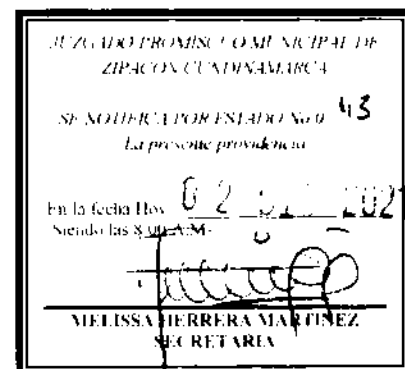 JUZGADO PROMISCUO MUNICIPAL DE
ZIPACON CUNDINAMARCA
SE NOTIFICA POR ESTADO No.0 43
La presente providencia
En la fecha Hoy 02 2021
Siendo las 8:00 A.M.
MELISSA HERRERA MARTINEZ
SECRETARIA